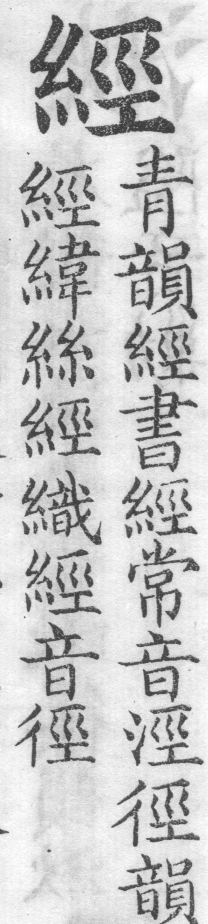 經
青韻經書經常音涇徑韻
經緯絲經織經音徑